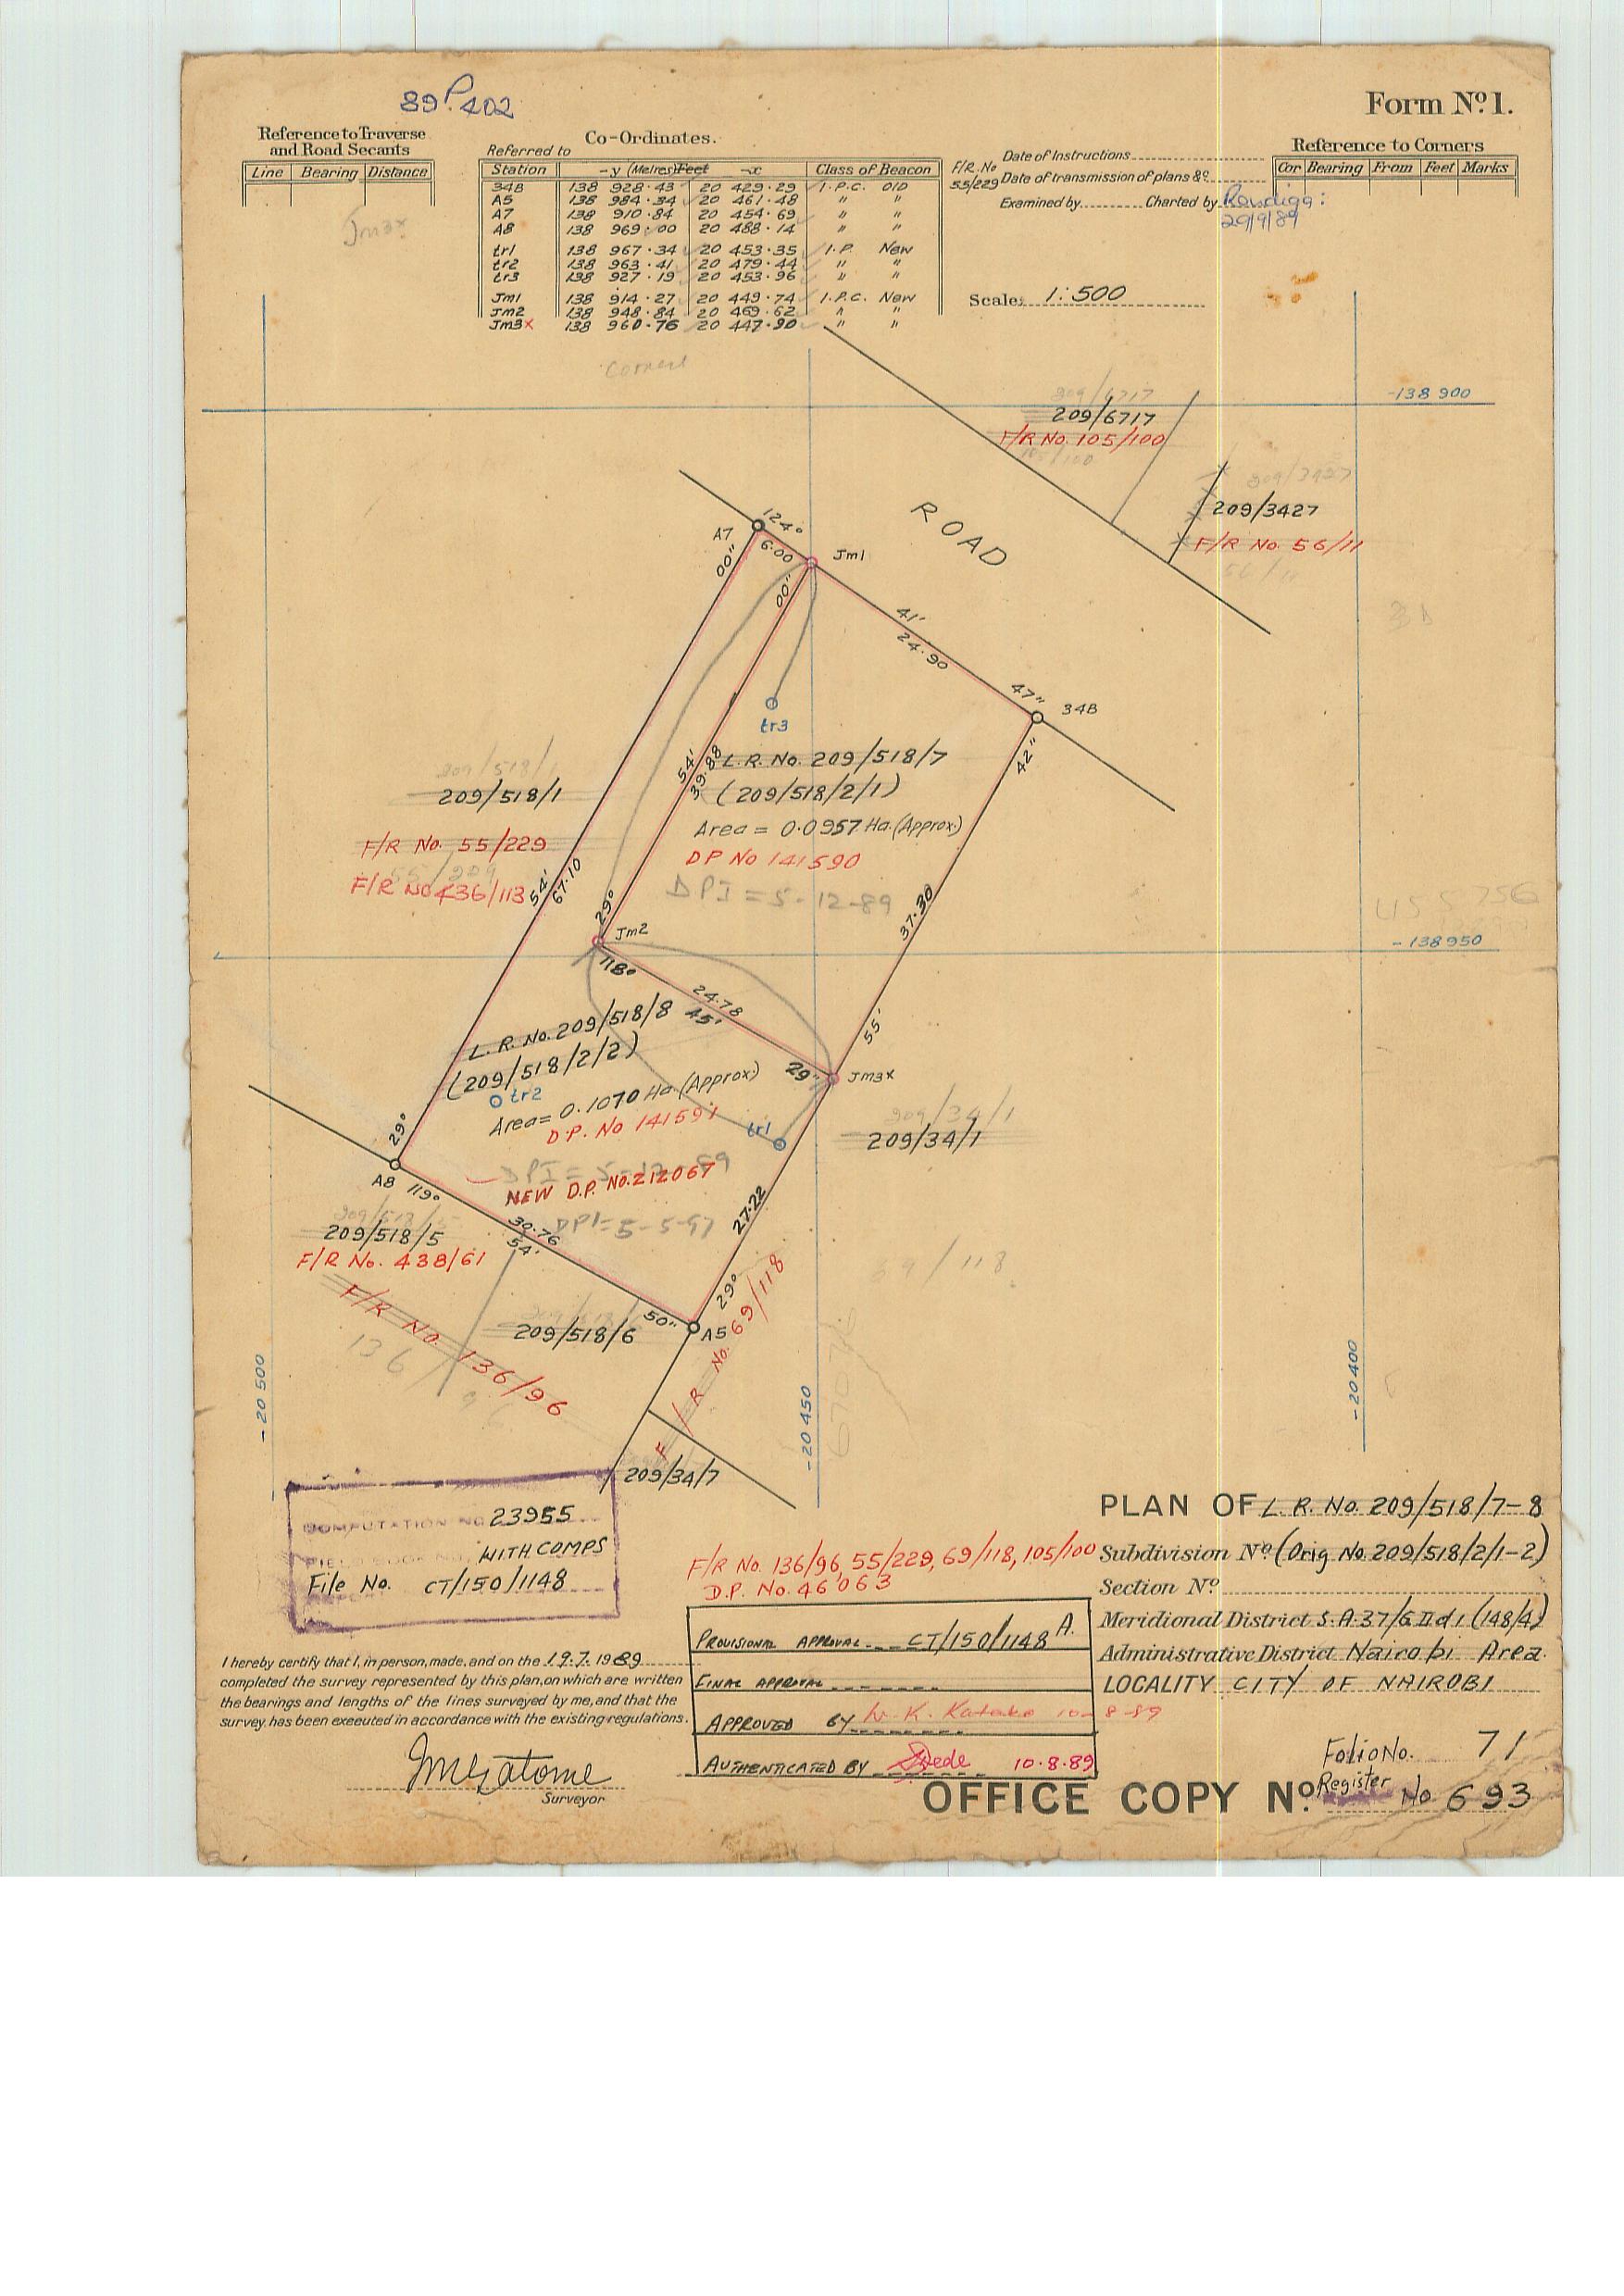 89P.402
Form Nº1.
Reference to Traverse
and Road Secants
Line Bearing Distance
Co-Ordinates.
Referred to
Station -y (Metres) Feet -x Class of Beacon
34B 138 928.43 20 429.29 I.P.C. Old
A5 138 984.34 20 461.48 " "
A7 138 910.84 20 454.69 " "
A8 138 969.00 20 488.14 " "
tr1 138 967.34 20 453.35 I.P. New
tr2 138 963.41 20 479.44 " "
tr3 138 927.19 20 453.96 " "
Jm1 138 914.27 20 449.74 I.P.C. New
Jm2 138 948.84 20 469.62 " "
Jm3x 138 960.76 20 447.90 " "
F/R. No
55/229
Date of Instructions
Date of transmission of plans &c.
Examined by Charted by
20/9/89
Scale: 1:500
Reference to Corners
Cor Bearing From Feet Marks
Jm3x
-138 900
209/6717
209/6717
F/R No. 105/100
105/100
209/3427
209/3427
F/R No. 56/11
56/11
ROAD
A7
124°
6.00
Jm1
00"
00"
41'
24.90
47"
34B
42"
tr3
54'
39.88
L.R. No. 209/518/7
(209/518/2/1)
Area = 0.0957 Ha.(Approx)
DP No 141590
DPI = 5-12-89
209/518/1
209/518/1
F/R No. 55/229
F/R No 436/113
54'
67.10
29°
37.30
Jm2
-138950
118°
24.78
45'
29"
55'
Jm3x
L.R. No. 209/518/8
(209/518/2/2)
tr2
Area= 0.1070 Ha.(Approx)
D.P. No 141591
tr1
DPI = 5-12-89
NEW D.P. NO.212067
DPI=5-5-97
209/34/1
209/34/1
29°
A8
119°
30.76
54'
27.22
209/518/5
209/518/5
F/R No. 438/61
F/R No. 136/96
136
209/518/6
50"
A5
29°
F/R No. 69/118
69/118
-20 500
-20 450
-20 400
209/34/7
COMPUTATION NO 23955
FIELD BOOK NO. WITH COMPS
File No. CT/150/1148
F/R No. 136/96, 55/229, 69/118, 105/100
D.P. No. 46063
PLAN OF L.R. No. 209/518/7-8
Subdivision Nº (Orig No. 209/518/2/1-2)
Section Nº
Meridional District S.A.37/G II d 1 (148/4)
Administrative District Nairobi Area
LOCALITY CITY OF NAIROBI
PROVISIONAL APPROVAL CT/150/1148 A.
FINAL APPROVAL
APPROVED BY 10-8-89
AUTHENTICATED BY 10.8.89
I hereby certify that I, in person, made, and on the 19.7.1989
completed the survey represented by this plan, on which are written
the bearings and lengths of the lines surveyed by me, and that the
survey has been executed in accordance with the existing regulations.
JMGatome
Surveyor
Folio No. 71
OFFICE COPY Nº.
Register No 693